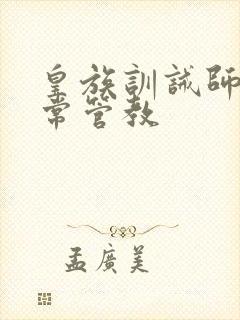 皇族訓誡師
常管教
孟廣美